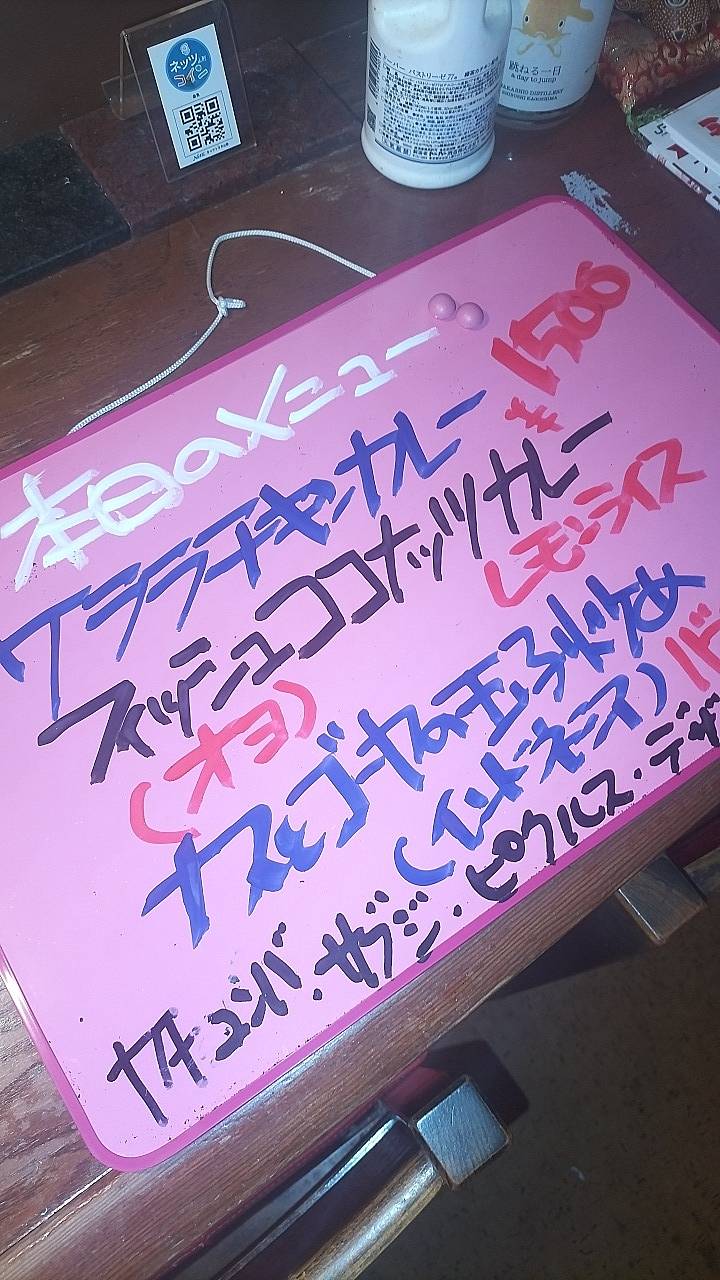 ネッツ
コイン
跳ねる一日
a day to jump
本日のメニュー
¥1500
ケララチキンカレー
フィッシュココナッツカレー
(オヨ)
レモンライス
ナスとゴーヤの玉子炒め
(インドネシアネース)
カチュンバ・サブジ・ピクルス・デザ